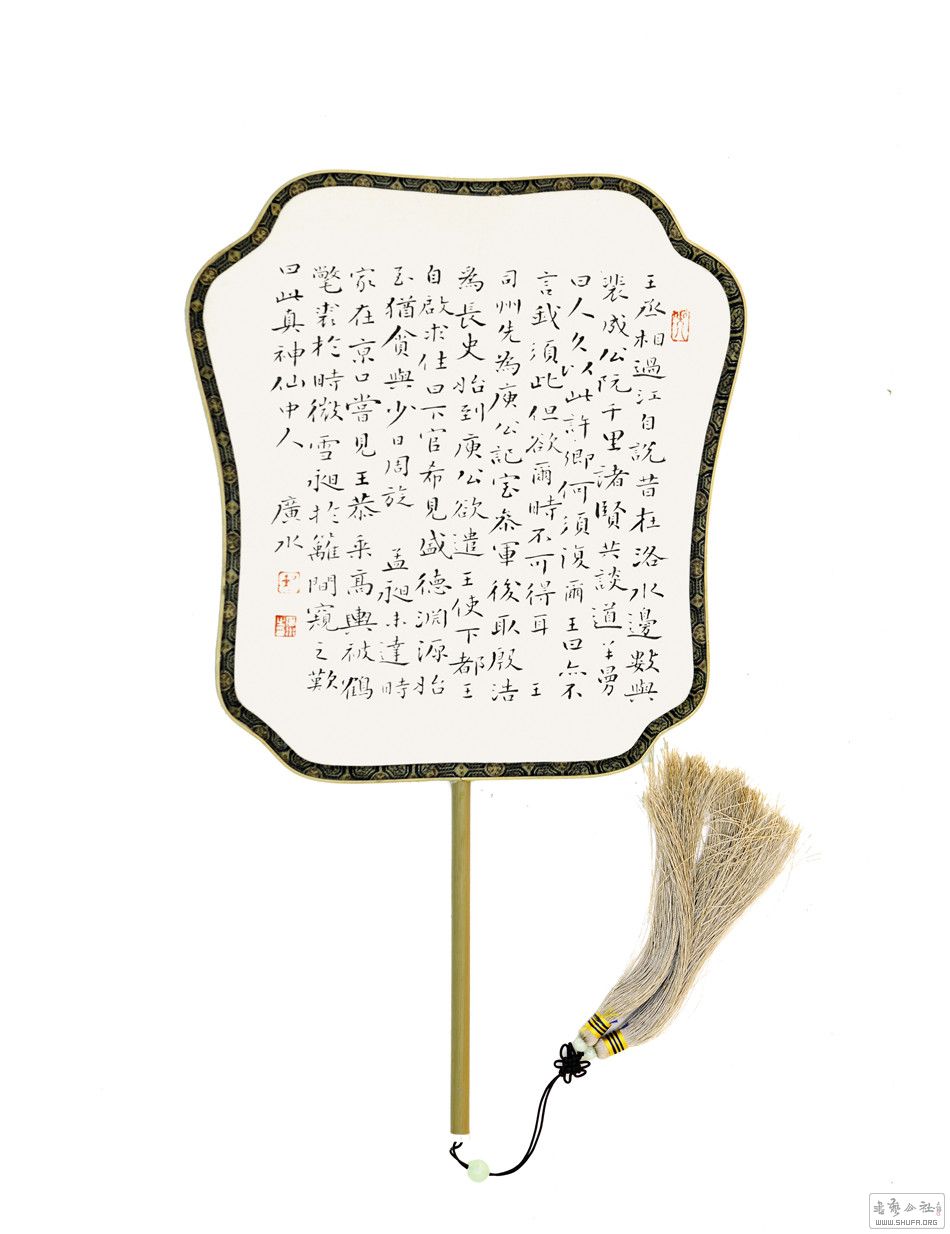 王丞相過江自說昔在洛水邊數與
裴成公阮千里諸賢共談道羊曼
曰人久以此許卿何須復爾王曰亦不
言我須此但欲爾時不可得耳 王
司州先為庾公記室參軍後取殷浩
為長史始到庾公欲遣王使下都王
自啟求住曰下官希見盛德淵源始
至猶貪與少日周旋 孟昶未達時
家在京口嘗見王恭乘高輿被鶴
氅裘於時微雪昶於籬間窺之歎
曰此真神仙中人 廣水
WWW.SHUFA.ORG